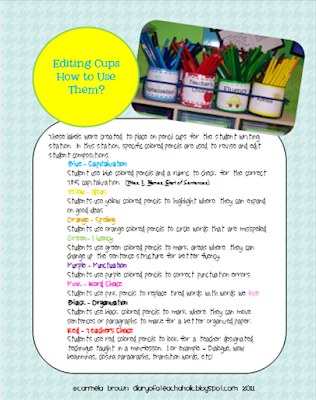 Editing Cups
How to Use
Them?
Capitalization
Teacher's
Fluency
Ideas
These labels were created to place on pencil cups for the student writing
station. In this station, specific colored pencils are used to revise and edit
student compositions.
Blue - Capitalization
Students use blue colored pencils and a rubric to check for the correct
capitalization. (Titles, I, Names, Start of Sentences)
Yellow - Ideas
Students use yellow colored pencils to highlight where they can expand
on good ideas
Orange - Spelling
Students use orange colored pencils to circle words that are misspelled
Green - Fluency
Students use green colored pencils to mark areas where they can
change up the sentence structure for better fluency.
Purple - Punctuation
Students use purple colored pencils to correct punctuation errors
Pink - Word Choice
Students use pink pencils to replace tired words with words we love
Black - Organization
Students use black colored pencils to mark where they can move
sentences or paragraphs to make for a better organized paper.
Red - Teacher's Choice
Students use red colored pencils to look for a teacher designated
technique taught in a mini-lesson. For example - Dialogue, wow
beginnings, closing paragraphs, transition words, etc!
©carmela brown diaryofateachaholic.blogspot.com 2011